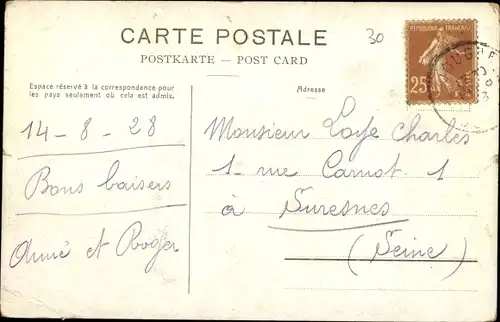 CARTE POSTALE
POSTKARTE — POST CARD
30
RÉPUBLIQUE FRANÇAISE
25
POSTES
Espace réservé à la correspondance pour
les pays seulement où cela est admis.
Adresse
14-8-28
Bons baisers
Aimé et Roger
Monsieur Charles
1 - rue Carnot. 1
à Suresnes
(Seine)